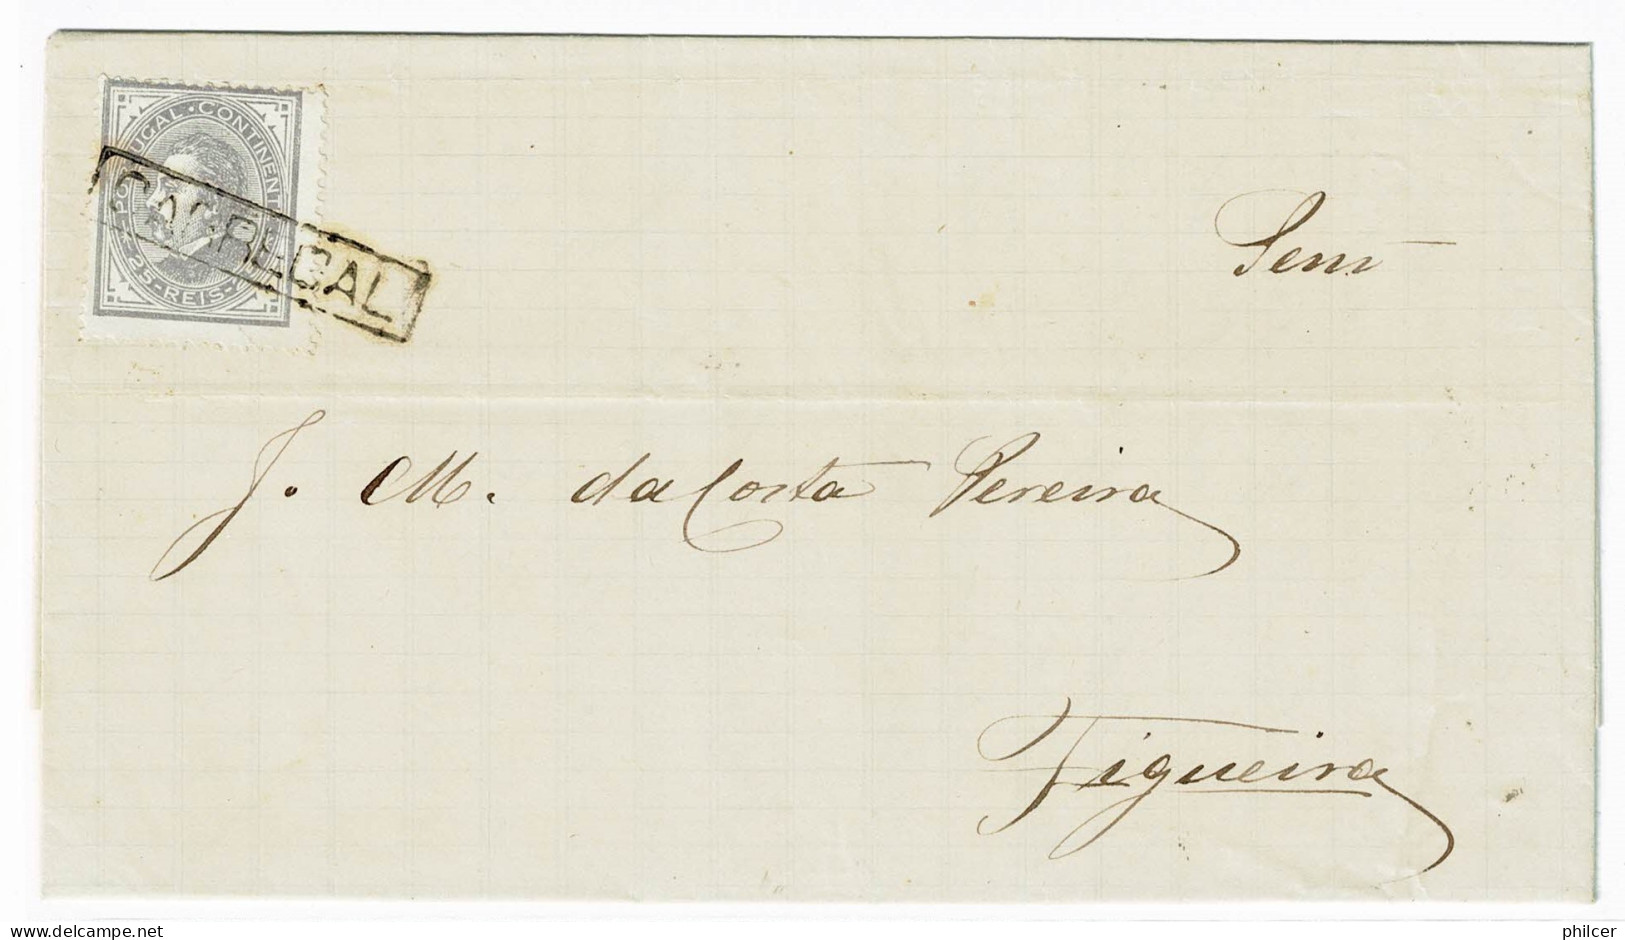 PORTUGAL · CONTINENTE
25 - REIS - 25
CARREGAL
J. M. da Costa Pereira
Figueira
delcampe.net
philcer